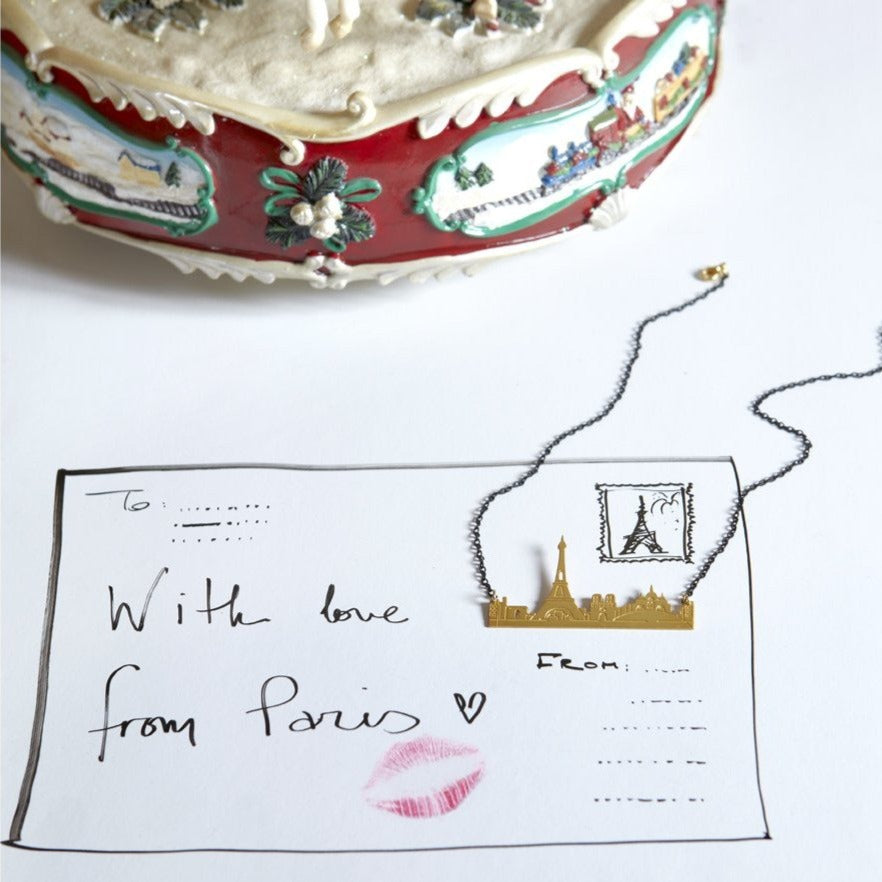 To:
With love
from Paris
FROM: